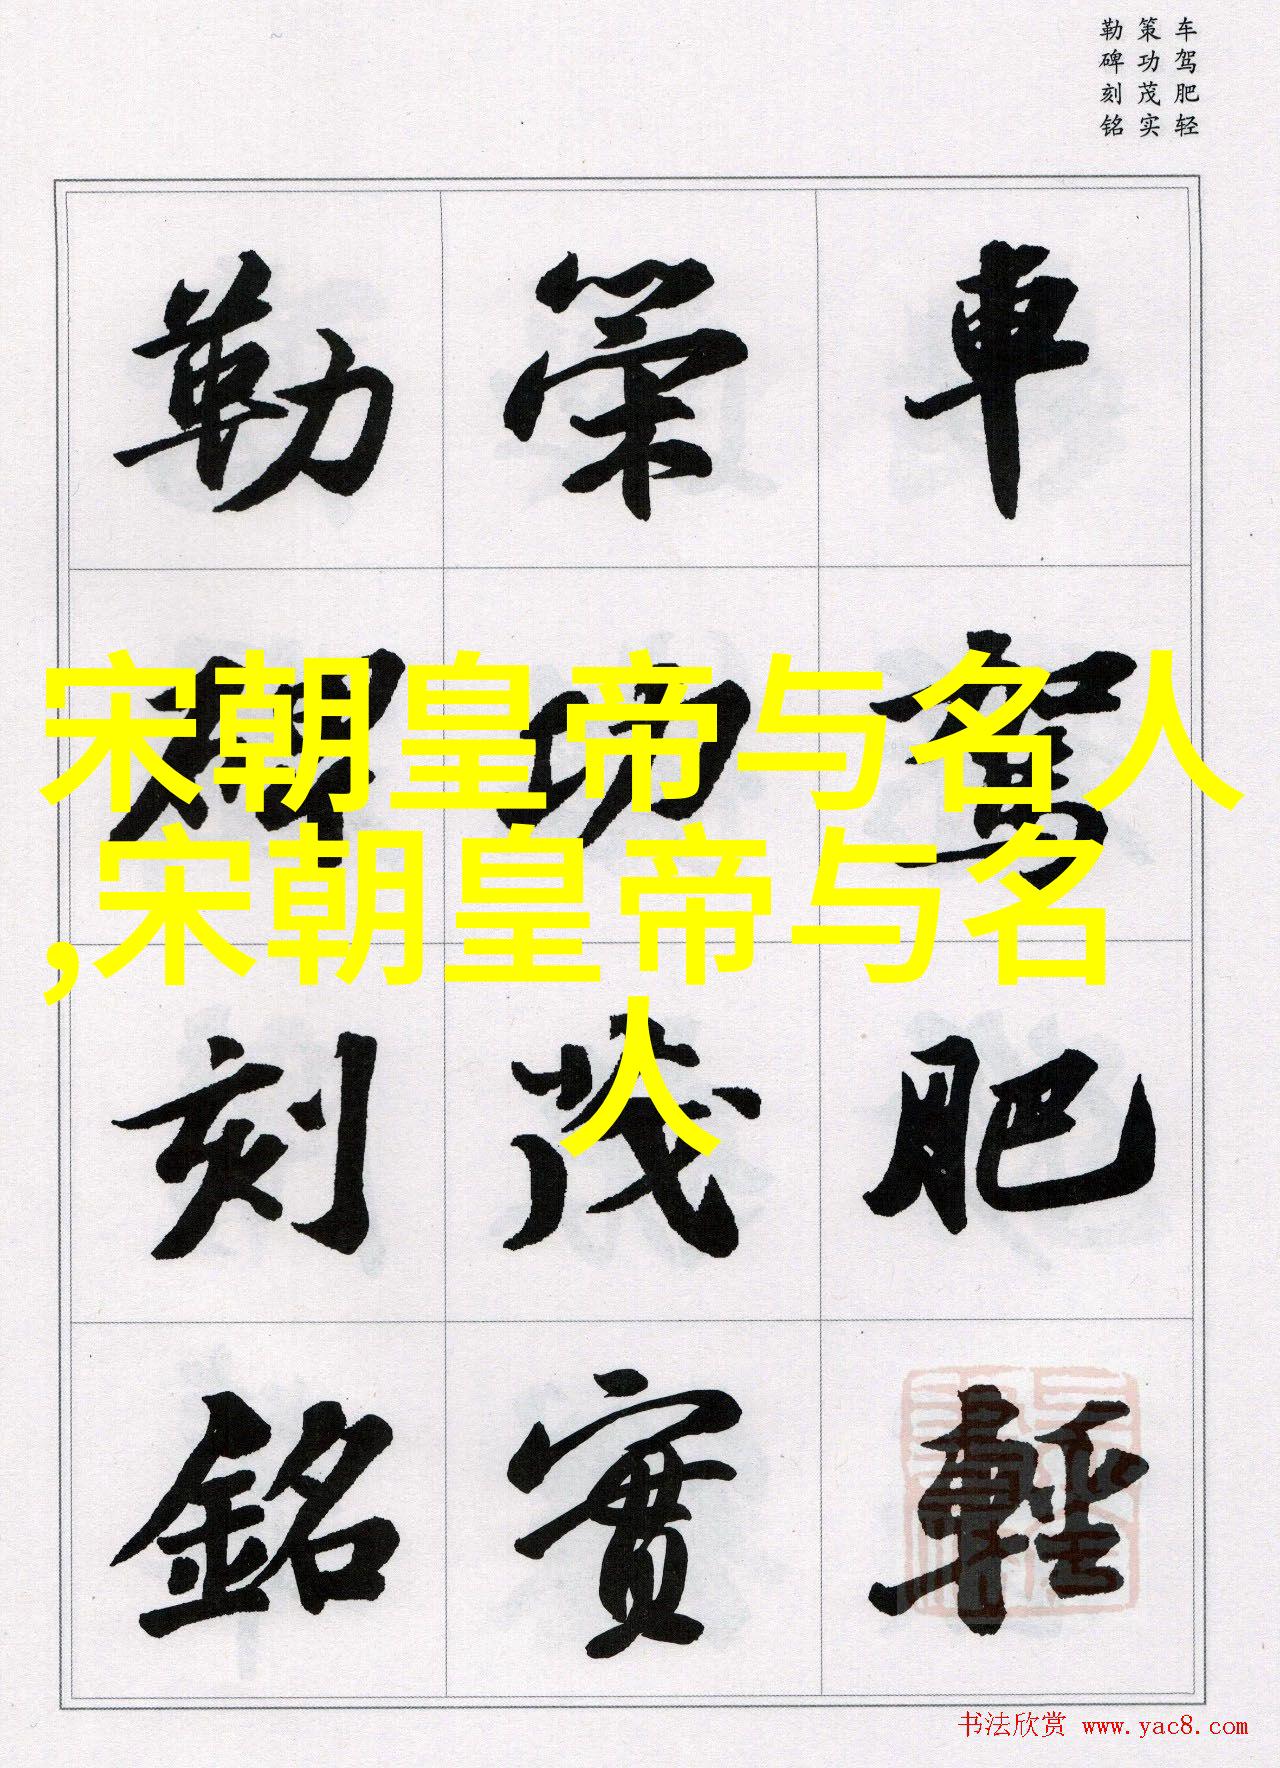 车驾肥轻
策功茂实
勒碑刻铭
車駕肥輕
策功茂實
勒碑刻銘
宋朝皇帝与名人
,宋朝皇帝与名
人
书法欣赏 www.yac8.com